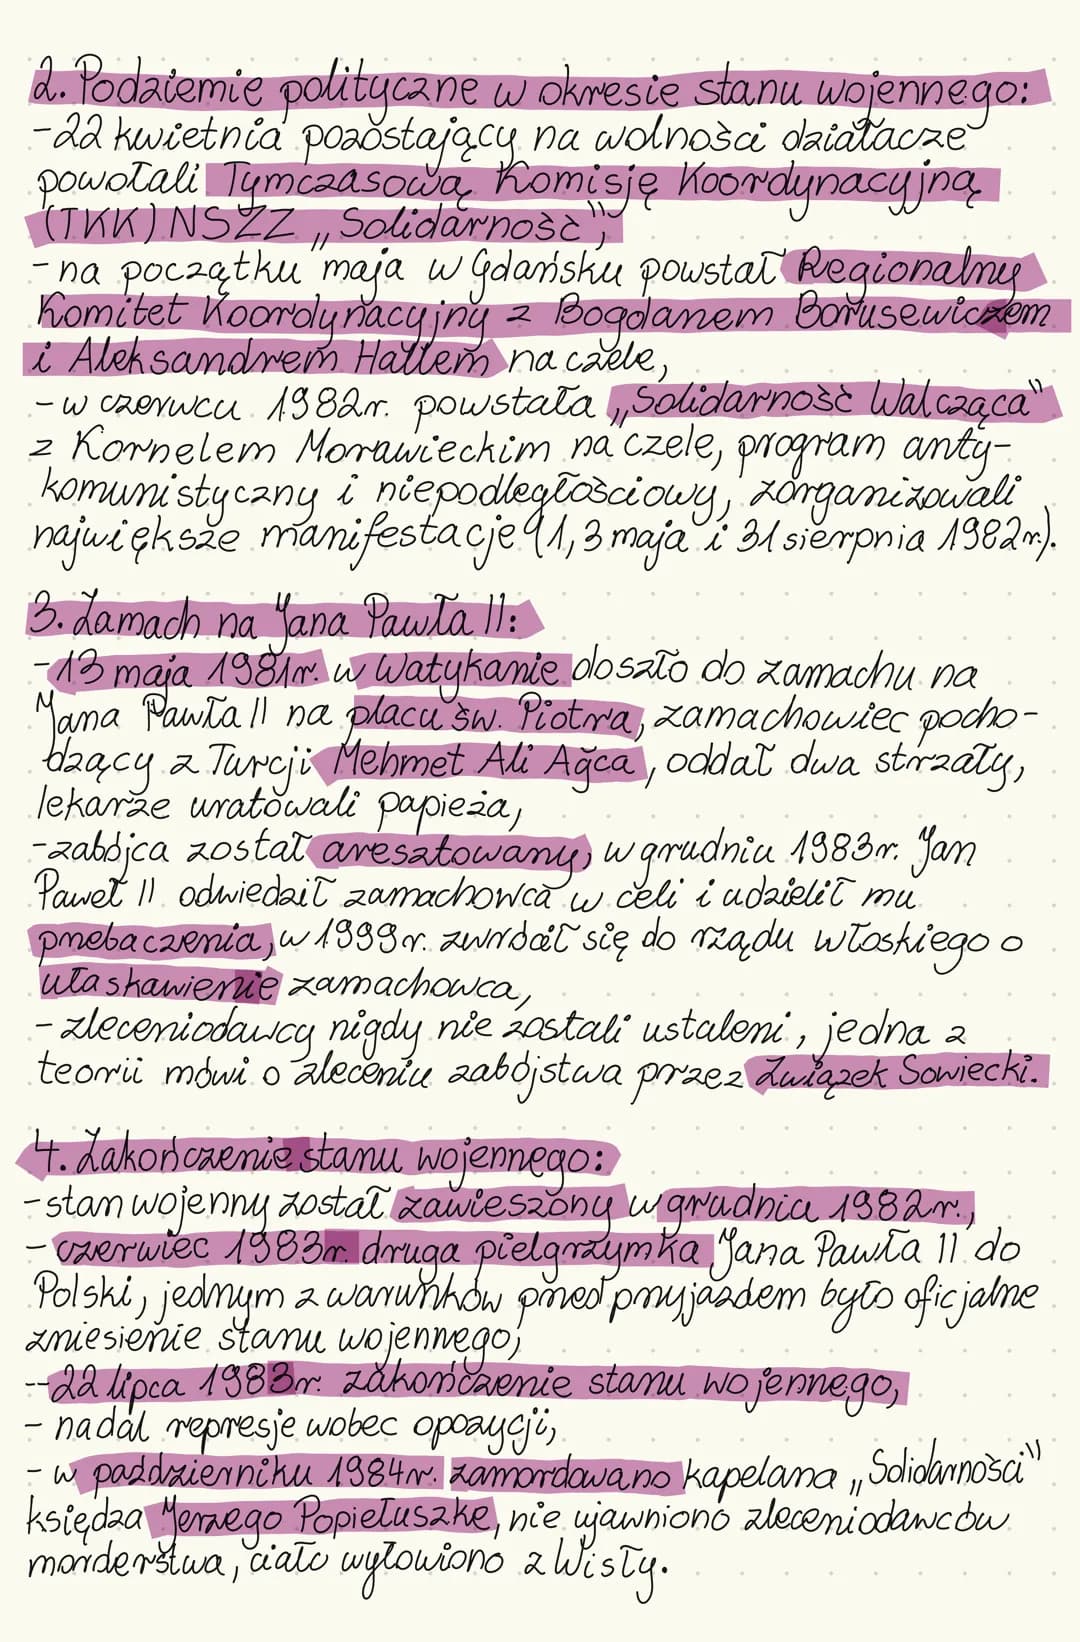 2. Podziemie polityczne w okresie stanu wojennego:
-22 kwietnia pozostający na wolności działacze
powołali Tymczasową Komisję Koordynacyjną
(TKK) NSZZ „Solidarność”,
- na początku maja w Gdańsku powstał Regionalny
Komitet Koordynacyjny z Bogdanem Borusewiczem
i Aleksandrem Hallem na czele,
- w czerwcu 1982r. powstała „Solidarność Walcząca”
z Kornelem Morawieckim na czele, program anty-
komunistyczny i niepodległościowy, zorganizowali
największe manifestacje (1, 3 maja i 31 sierpnia 1982r.).
3. Zamach na Jana Pawła II:
-13 maja 1981r. w Watykanie doszło do zamachu na
Jana Pawła II na placu św. Piotra, zamachowiec pocho-
dzący z Turcji Mehmet Ali Ağca, oddał dwa strzały,
lekarze uratowali papieża,
-zabójca został aresztowany, w grudniu 1983r. Jan
Paweł II odwiedził zamachowca w celi i udzielił mu
przebaczenia, w 1999r. zwrócił się do rządu włoskiego o
ułaskawienie zamachowca,
- zleceniodawcy nigdy nie zostali ustaleni, jedna z
teorii mówi o zleceniu zabójstwa przez Związek Sowiecki.
4. Zakończenie stanu wojennego:
- stan wojenny został zawieszony w grudniu 1982r.,
- czerwiec 1983r. druga pielgrzymka Jana Pawła II do
Polski, jednym z warunków przed przyjazdem było oficjalne
zniesienie stanu wojennego,
--22 lipca 1983r. zakończenie stanu wojennego,
- nadal represje wobec opozycji,
- w październiku 1984r. zamordowano kapelana „Solidarności”
księdza Jerzego Popiełuszkę, nie ujawniono zleceniodawców
morderstwa, ciało wyłowiono z Wisły.